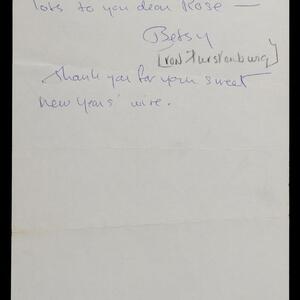 lots to you dear Rose —
Betsy
[von Furstenburg]
thank you for your sweet
New Years' wire.